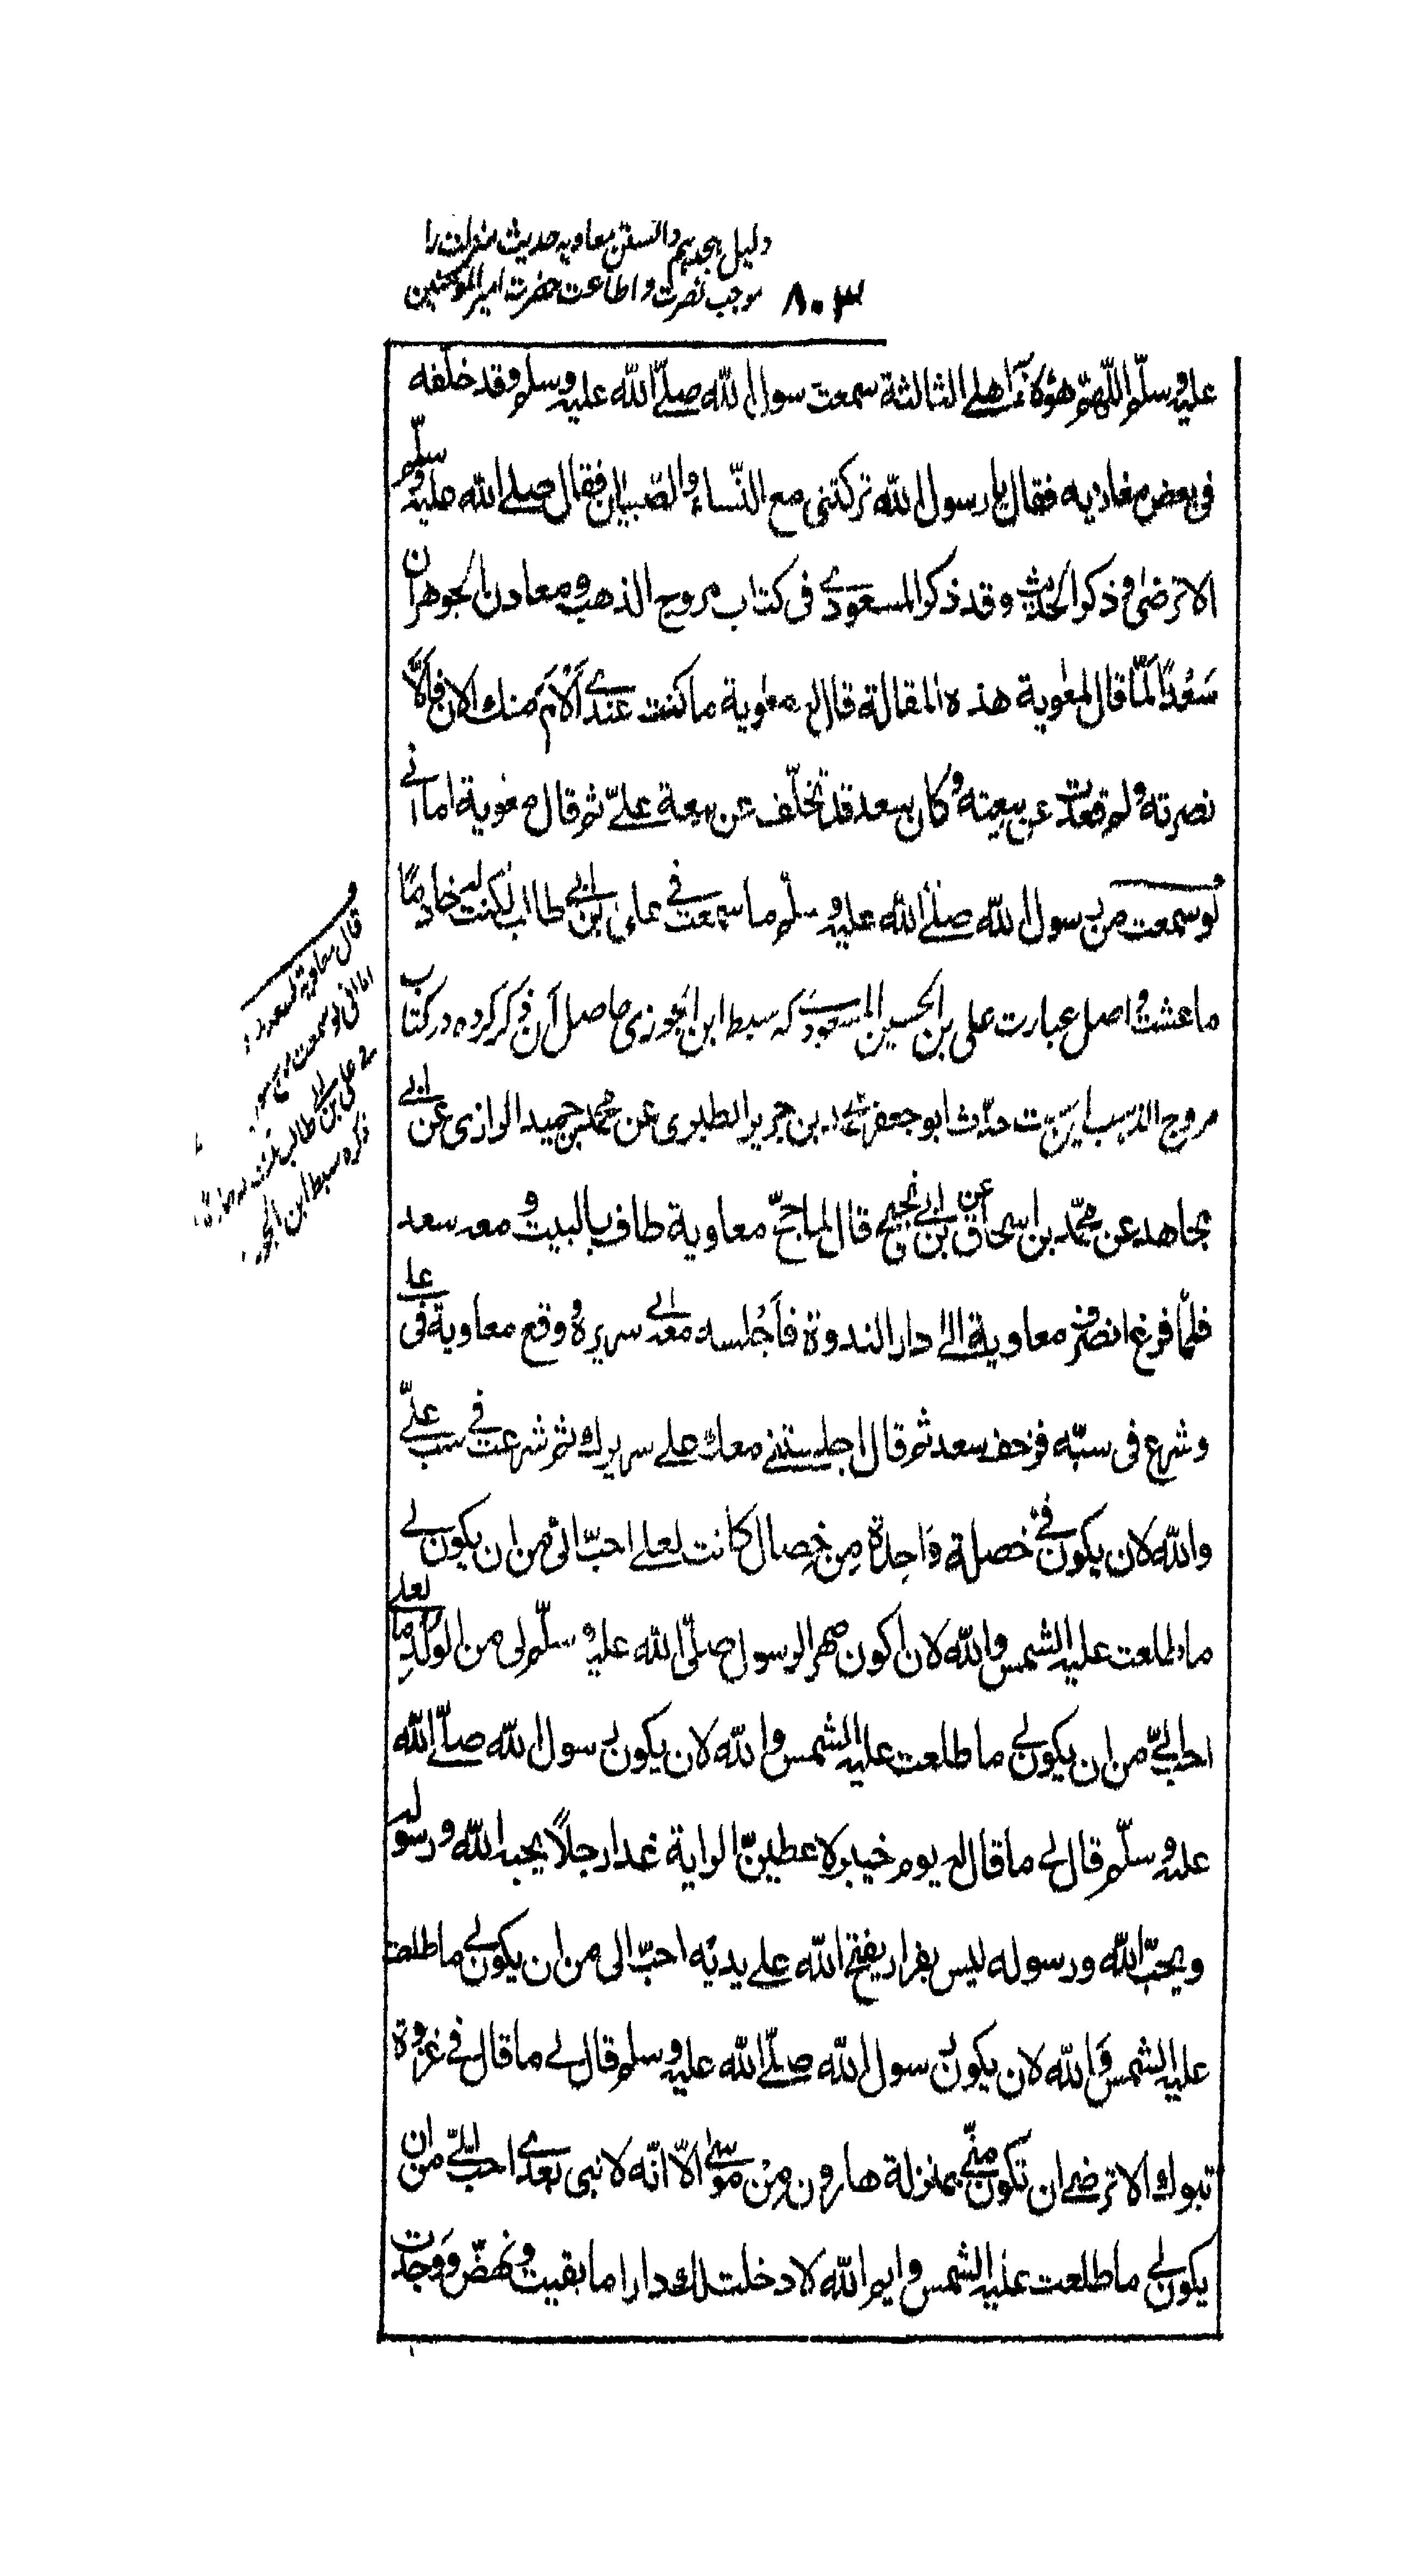 دلیل هجدهم دانستن معاویه حدیث منزلت را
موجب نصرت و اطاعت حضرت امیرالمؤمنین
۸۰۳
علیه وسلّم اللّهمّ هؤلاء اهلی الثالثة سمعت رسول اللّه صلّی اللّه علیه وسلّم وقد خلّفه
فی بعض مغازیه فقال یا رسول اللّه ترکتنی مع النّساء والصّبیان فقال صلی اللّه علیه وسلّم
الا ترضی و ذکر الحدیث وقد ذکر المسعودی فی کتاب مروج الذهب ومعادن الجوهر ان
سَعْدًا لمّا قال لمعٰویة هذه المقالة قال له معٰویة ما کنت عندی اَلْاَم منك الآن فألّا
نصرته ولم قعدت عن بیعته وکان سعد قد تخلّف عن بیعة علیّ ثم قال معٰویة اما انی
لو سمعت من رسول اللّه صلّی اللّه علیه وسلّم ما سمعت فی علی بن ابی طالب لکنت له خادمًا
ما عشت واصل عبارت علی بن الحسین المسعودی که سبط ابن الجوزی حاصل آن ذکر کرده در کتاب
مروج الذهب این ست حدّث ابو جعفر محمد بن جریر الطبری عن محمد بن حمید الرازی عن ابی
مجاهد عن محمّد بن اسحاق عن ابن ابی نجیح قال لما حجّ معاویة طاف بالبیت و معه سعد
فلمّا فرغ انصرف معاویة الی دار الندوة فاَجْلسه معه علی سریره ووقع معاویة فی علی
وشرع فی سبّه فزحف سعد ثم قال اجلستنی معك علی سریرك ثم شرعت فی سب علیّ
واللّه لان یکون فیّ خصلة وَاحِدة مِن خِصال کانت لعلی احبّ الیّ من ان یکون لی
ما طلعت علیه الشمس واللّه لان اکون صهر الرسول صلّی اللّه علیه وسلّم لی من الولد ما لعلی
احب الیّ من ان یکون لی ما طلعت علیه الشمس واللّه لان یکون رسول اللّه صلّی اللّه
علیه وسلّم قال لی ما قال له یوم خیبر لاعطینّ الرایة غدا رجلاً یحبه اللّه ورسوله
ویحبّ اللّه ورسوله لیس بفرار یفتح اللّه علی یدیْه احبّ الی من ان یکون لی ما طلعت
علیه الشمس وَاللّه لان یکون رسول اللّه صلّی اللّه علیه وسلم قال لی ما قال فی غزوة
تبوك الا ترضی ان تکون منّی بمنزلة هارون مِنْ موسٰی الّا انّه لا نبی بعدی احبّ الیّ من ان
یکون لی ما طلعت علیه الشمس وایم اللّه لا دخلت لك دارا ما بقیت ونهضَ ووجدت
قال معاویة لسعد
اما انی لو سمعت من رسو
فی علی بن ابی طالب لکنت له خادما
ذکره سبط ابن الجو